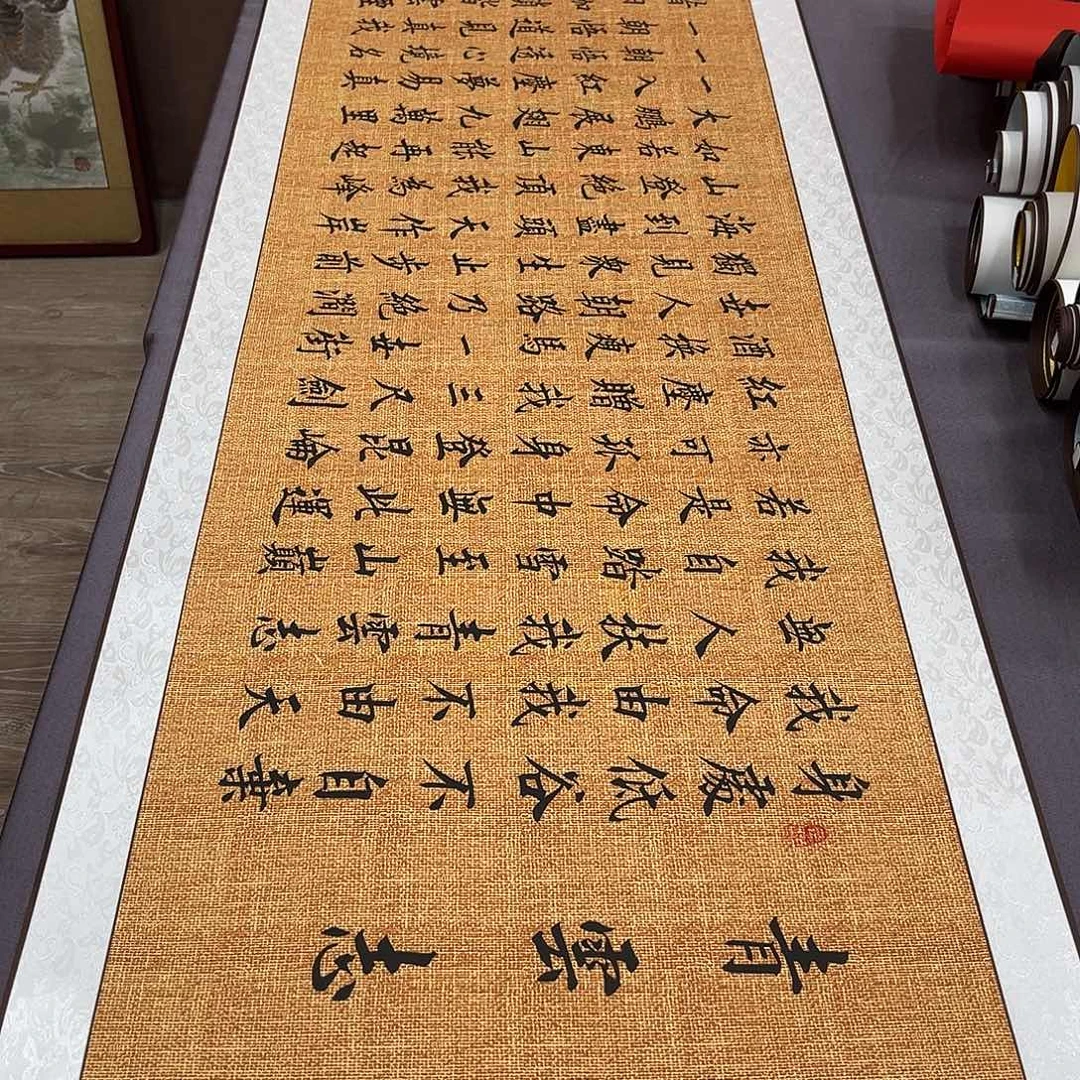 青雲志
身處低谷不自棄
我命由我不由天
無人扶我青雲志
我自踏雪至山巔
若是命中無此運
亦可孤身登昆崙
紅塵贈我三尺劍
酒換瘦馬一世街
世人朝路乃絕澗
獨見眾生止步前
海到盡頭天作岸
山登絕頂我為峰
如若東山能再起
大鵬展翅九萬里
一入紅塵夢易真
一朝悟透心境名
一朝悟道見真我